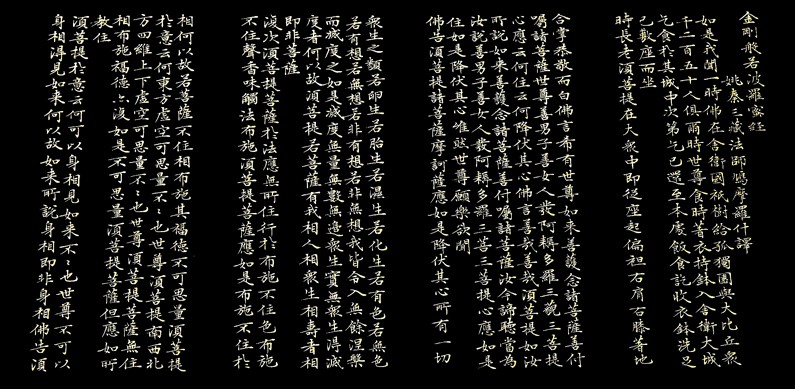 金剛般若波羅蜜經
姚秦三藏法師鳩摩羅什譯
如是我聞一時佛在舍衛國祇樹給孤獨園與大比丘衆
千二百五十人俱爾時世尊食時著衣持鉢入舍衛大城
乞食於其城中次第乞已還至本處飯食訖收衣鉢洗足
已敷座而坐
時長老湏菩提在大衆中即從座起偏袒右肩右膝著地
合掌恭敬而白佛言希有世尊如来善護念諸菩薩善付
囑諸菩薩世尊善男子善女人發阿耨多羅三藐三菩提
心應云何住云何降伏其心佛言善哉善哉湏菩提如汝
所說如来善護念諸菩薩善付囑諸菩薩汝今諦聽當為
汝說善男子善女人發阿耨多羅三藐三菩提心應如是
住如是降伏其心唯然世尊願樂欲聞
佛告湏菩提諸菩薩摩訶薩應如是降伏其心所有一切
衆生之類若卵生若胎生若濕生若化生若有色若無色
若有想若無想若非有想若非無想我皆令入無餘涅槃
而滅度之如是滅度無量無數無邊衆生實無衆生得滅
度者何以故湏菩提若菩薩有我相人相衆生相壽者相
即非菩薩
復次湏菩提菩薩於法應無所住行於布施不住色布施
不住聲香味觸法布施湏菩提菩薩應如是布施不住於
相何以故若菩薩不住相布施其福德不可思量湏菩提
於意云何東方虛空可思量不不也世尊湏菩提南西北
方四維上下虛空可思量不不也世尊湏菩提菩薩無住
相布施福德亦復如是不可思量湏菩提菩薩但應如所
教住
湏菩提於意云何可以身相見如来不不也世尊不可以
身相得見如来何以故如来所說身相即非身相佛告湏